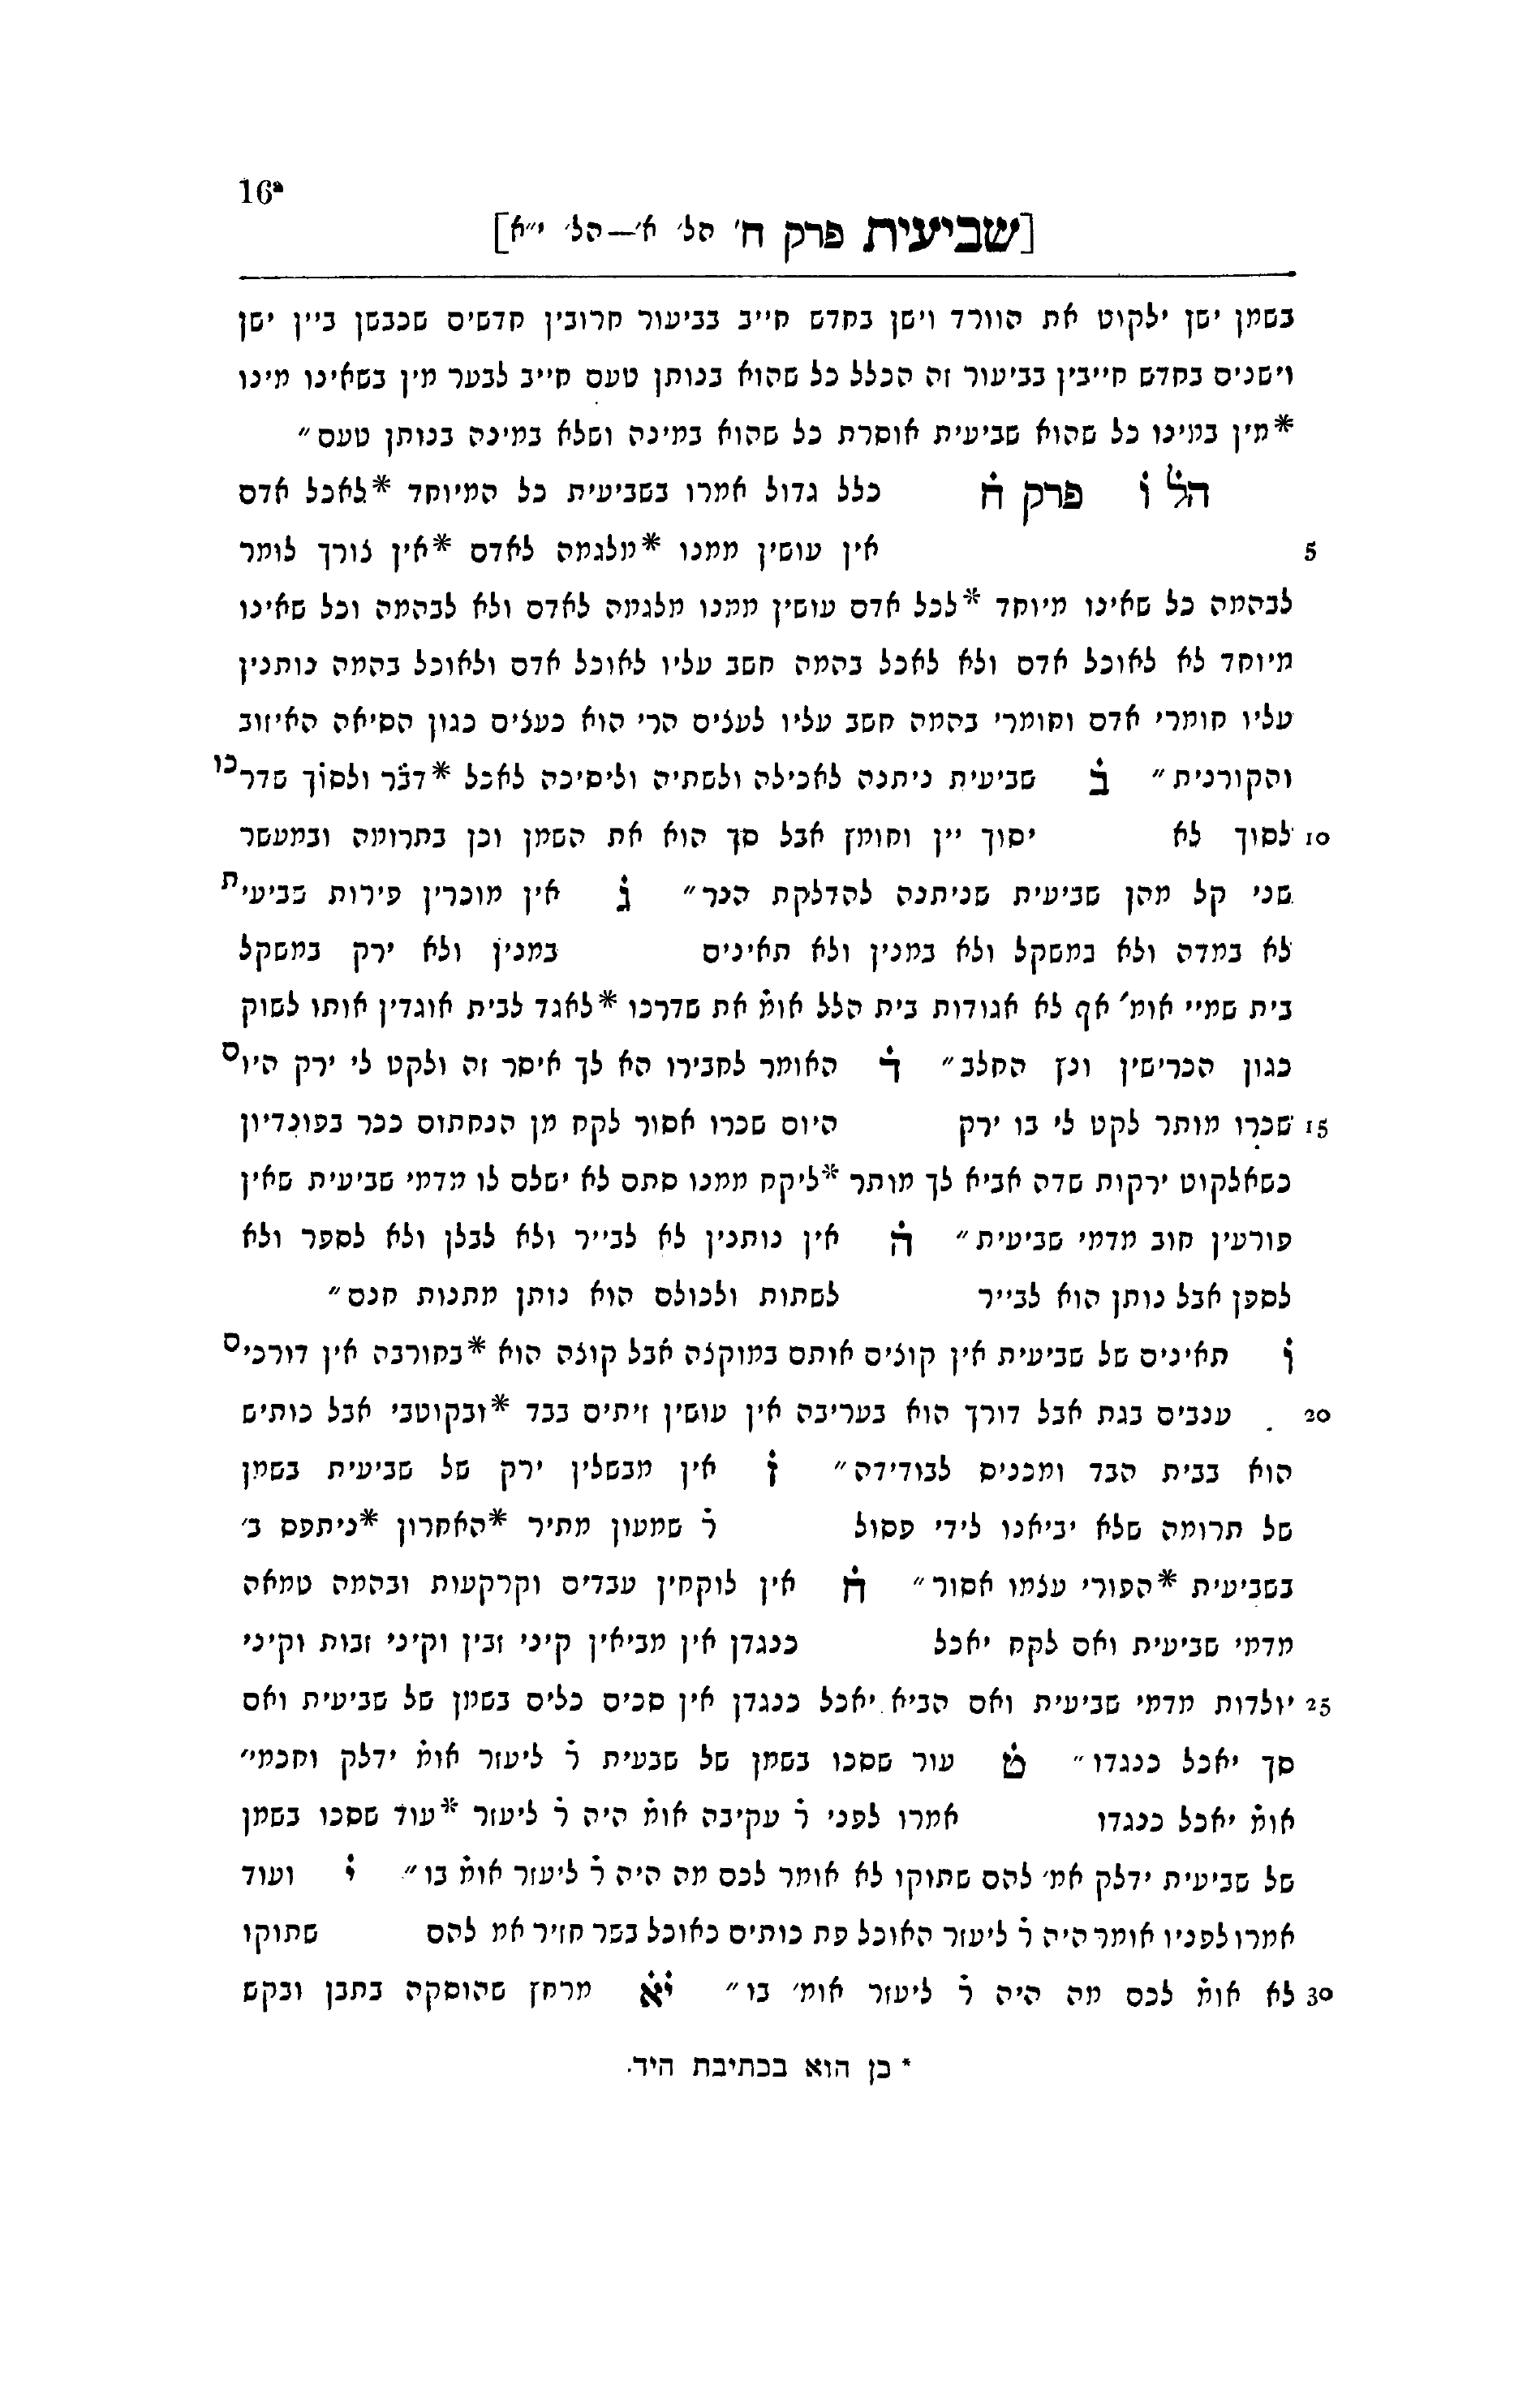 16ª
[שביעית פרק ח' הל' א'—הל' י״א]
בשמן ישן ילקוט את הוורד וישן בחדש חייב בביעור חרובין חדשים שכבשן ביין ישן
וישנים בחדש חייבין בביעור זה הכלל כל שהוא בנותן טעם חייב לבער מין בשאינו מינו
*מין במינו כל שהוא שביעית אוסרת כל שהוא במינה ושלא במינה בנותן טעם״
הל ו פרק ח כלל גדול אמרו בשביעית כל המיוחד *לאכל אדם
5 אין עושין ממנו *מלגמה לאדם *אין צורך לומר
לבהמה כל שאינו מיוחד *לכל אדם עושין ממנו מלגמה לאדם ולא לבהמה וכל שאינו
מיוחד לא לאוכל אדם ולא לאכל בהמה חשב עליו לאוכל אדם ולאוכל בהמה נותנין
עליו חומרי אדם וחומרי בהמה חשב עליו לעצים הרי הוא כעצים כגון הסיאה האיזוב
והקורנית״ ב שביעית ניתנה לאכילה ולשתיה וליסיכה לאכל *דבר ולסוך שדרכו
10 לסוך לא יסוך יין וחומץ אבל סך הוא את השמן וכן בתרומה ובמעשר
שני קל מהן שביעית שניתנה להדלקת הנר״ ג אין מוכרין פירות שביעית
לא במדה ולא במשקל ולא במנין ולא תאינים במנין ולא ירק במשקל
בית שמיי אומ' אף לא אגודות בית הלל אומ את שדרכו *לאגד לבית אוגדין אותו לשוק
כגון הכרישין ונץ החלב״ ד האומר לחבירו הא לך איסר זה ולקט לי ירק היום
15 שכרו מותר לקט לי בו ירק היום שכרו אסור לקח מן הנחתום ככר בפונדיון
כשאלקוט ירקות שדה אביא לך מותר *ליקח ממנו סתם לא ישלם לו מדמי שביעית שאין
פורעין חוב מדמי שביעית״ ה אין נותנין לא לבייר ולא לבלן ולא לספר ולא
לספן אבל נותן הוא לבייר לשתות ולכולם הוא נותן מתנות חנם״
ו תאינים של שביעית אין קוצים אותם במוקצה אבל קוצה הוא *בחורבה אין דורכים
20 ענבים בגת אבל דורך הוא בעריבה אין עושין זיתים בבד *ובקוטבי אבל כותיש
הוא בבית הבד ומכניס לבודידה״ ז אין מבשלין ירק של שביעית בשמן
של תרומה שלא יביאנו לידי פסול ר שמעון מתיר *האחרון *ניתפס ב'
בשביעית *הפורי עצמו אסור״ ח אין לוקחין עבדים וקרקעות ובהמה טמאה
מדמי שביעית ואם לקח יאכל כנגדן אין מביאין קיני זבין וקיני זבות וקיני
25 יולדות מדמי שביעית ואם הביא יאכל כנגדן אין סכים כלים בשמן של שביעית ואם
סך יאכל כנגדו״ ט עור שסכו בשמן של שבעית ר ליעזר אומ ידלק וחכמי״
אומ יאכל כנגדו אמרו לפני ר עקיבה אומ היה ר ליעזר *עוד שסכו בשמן
של שביעית ידלק אמ' להם שתוקו לא אומר לכם מה היה ר ליעזר אומ בו״ י ועוד
אמרו לפניו אומר היה ר ליעזר האוכל פת כותים כאוכל בשר חזיר אמ להם שתוקו
30 לא אומ לכם מה היה ר ליעזר אומ' בו״ יא מרחץ שהוסקה בתבן ובקש
* כן הוא בכתיבת היד.